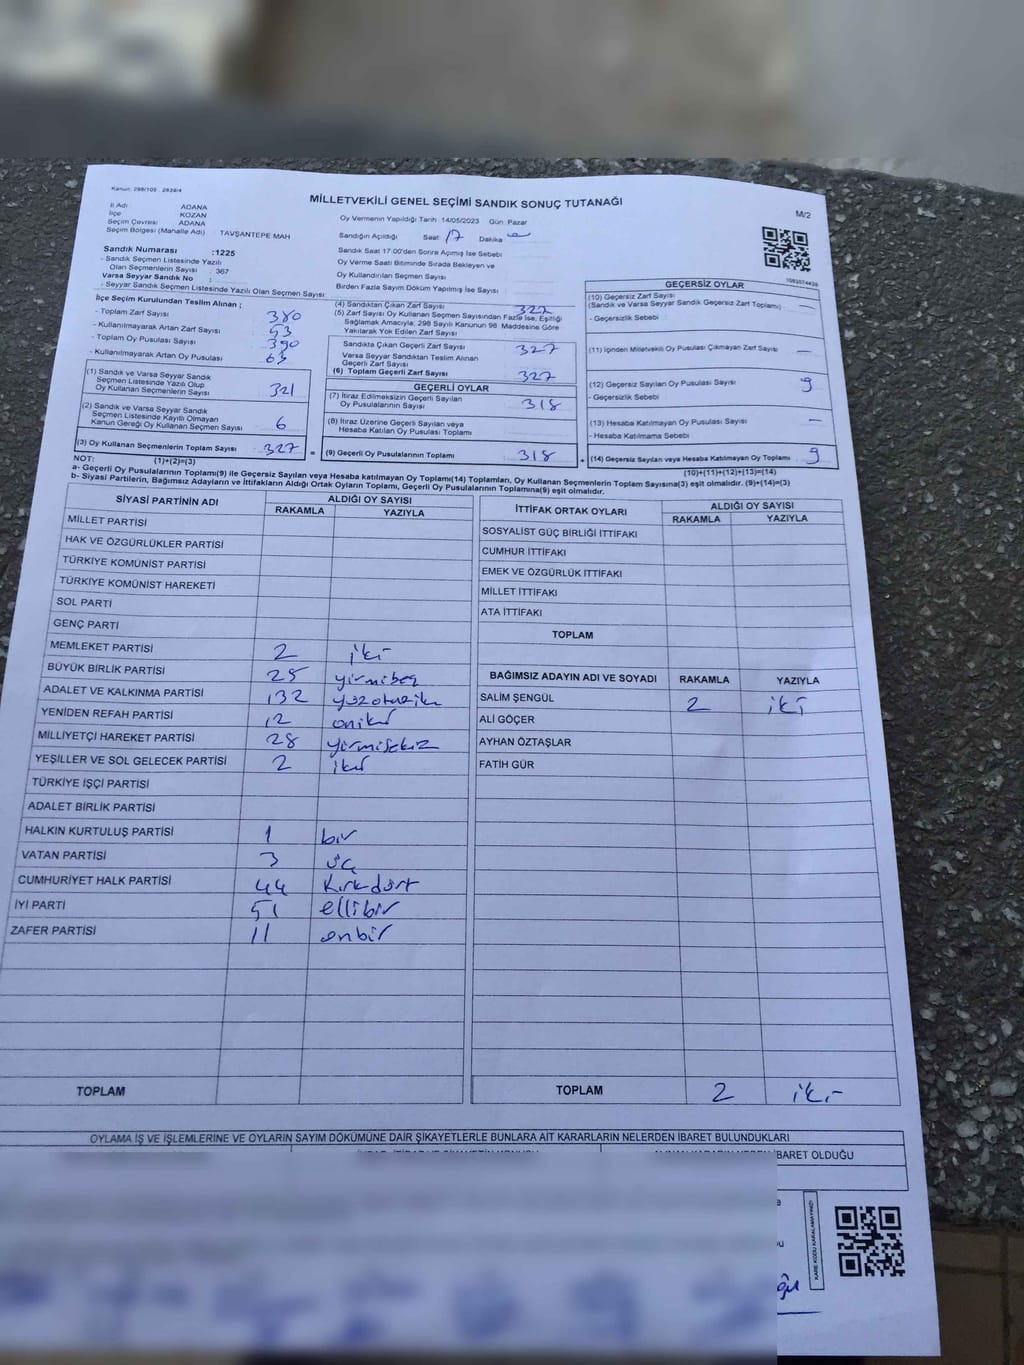 Kanun: 298/105 2839/4
MİLLETVEKİLİ GENEL SEÇİMİ SANDIK SONUÇ TUTANAĞI
M/2
İl Adı ADANA
İlçe KOZAN
Seçim Çevresi ADANA
Seçim Bölgesi (Mahalle Adı) : TAVŞANTEPE MAH
Sandık Numarası :1225
- Sandık Seçmen Listesinde Yazılı
Olan Seçmenlerin Sayısı : 367
Varsa Seyyar Sandık No :
- Seyyar Sandık Seçmen Listesinde Yazılı Olan Seçmen Sayısı
Oy Vermenin Yapıldığı Tarih :14/05/2023 Gün: Pazar
Sandığın Açıldığı Saat 17 Dakika
Sandık Saat 17:00'den Sonra Açımış İse Sebebi
Oy Verme Saati Bitiminde Sırada Bekleyen ve
Oy Kullandırılan Seçmen Sayısı
Birden Fazla Sayım Döküm Yapılmış İse Sayısı
İlçe Seçim Kurulundan Teslim Alınan ;
- Toplam Zarf Sayısı 380
- Kullanılmayarak Artan Zarf Sayısı 53
- Toplam Oy Pusulası Sayısı 390
- Kullanılmayarak Artan Oy Pusulası 63
(1) Sandık ve Varsa Seyyar Sandık
Seçmen Listesinde Yazılı Olup
Oy Kullanan Seçmenlerin Sayısı 321
(2) Sandık ve Varsa Seyyar Sandık
Seçmen Listesinde Kayıtlı Olmayan
Kanun Gereği Oy Kullanan Seçmen Sayısı 6
(3) Oy Kullanan Seçmenlerin Toplam Sayısı 327
(1)+(2)=(3)
(4) Sandıktan Çıkan Zarf Sayısı 327
(5) Zarf Sayısı Oy Kullanan Seçmen Sayısından Fazla İse, Eşitliği
Sağlamak Amacıyla, 298 Sayılı Kanunun 98. Maddesine Göre
Yakılarak Yok Edilen Zarf Sayısı
Sandıkta Çıkan Geçerli Zarf Sayısı 327
Varsa Seyyar Sandıktan Teslim Alınan
Geçerli Zarf Sayısı
(6) Toplam Geçerli Zarf Sayısı 327
GEÇERLİ OYLAR
(7) İtiraz Edilmeksizin Geçerli Sayılan
Oy Pusulalarının Sayısı 318
(8) İtiraz Üzerine Geçerli Sayılan veya
Hesaba Katılan Oy Pusulası Toplamı
= (9) Geçerli Oy Pusulalarının Toplamı 318
GEÇERSİZ OYLAR
(10) Geçersiz Zarf Sayısı
(Sandık ve Varsa Seyyar Sandık Geçersiz Zarf Toplamı) —
- Geçersizlik Sebebi
(11) İçinden Milletvekili Oy Pusulası Çıkmayan Zarf Sayısı —
(12) Geçersiz Sayılan Oy Pusulası Sayısı 9
- Geçersizlik Sebebi
(13) Hesaba Katılmayan Oy Pusulası Sayısı —
- Hesaba Katılmama Sebebi
+ (14) Geçersiz Sayılan veya Hesaba Katılmayan Oy Toplamı 9
(10)+(11)+(12)+(13)=(14)
NOT:
a- Geçerli Oy Pusulalarının Toplamı(9) ile Geçersiz Sayılan veya Hesaba katılmayan Oy Toplamı(14) Toplamları, Oy Kullanan Seçmenlerin Toplam Sayısına(3) eşit olmalıdır. (9)+(14)=(3)
b- Siyasi Partilerin, Bağımsız Adayların ve İttifakların Aldığı Ortak Oyların Toplamı, Geçerli Oy Pusulalarının Toplamına(9) eşit olmalıdır.
SİYASİ PARTİNİN ADI ALDIĞI OY SAYISI
RAKAMLA YAZIYLA
MİLLET PARTİSİ
HAK VE ÖZGÜRLÜKLER PARTİSİ
TÜRKİYE KOMÜNİST PARTİSİ
TÜRKİYE KOMÜNİST HAREKETİ
SOL PARTİ
GENÇ PARTİ
MEMLEKET PARTİSİ 2 iki
BÜYÜK BİRLİK PARTİSİ 25 yirmibeş
ADALET VE KALKINMA PARTİSİ 132 yüzotuziki
YENİDEN REFAH PARTİSİ 12 oniki
MİLLİYETÇİ HAREKET PARTİSİ 28 yirmisekiz
YEŞİLLER VE SOL GELECEK PARTİSİ 2 iki
TÜRKİYE İŞÇİ PARTİSİ
ADALET BİRLİK PARTİSİ
HALKIN KURTULUŞ PARTİSİ 1 bir
VATAN PARTİSİ 3 üç
CUMHURİYET HALK PARTİSİ 44 kırkdört
İYİ PARTİ 51 ellibir
ZAFER PARTİSİ 11 onbir
TOPLAM
İTTİFAK ORTAK OYLARI ALDIĞI OY SAYISI
RAKAMLA YAZIYLA
SOSYALİST GÜÇ BİRLİĞİ İTTİFAKI
CUMHUR İTTİFAKI
EMEK VE ÖZGÜRLÜK İTTİFAKI
MİLLET İTTİFAKI
ATA İTTİFAKI
TOPLAM
BAĞIMSIZ ADAYIN ADI VE SOYADI RAKAMLA YAZIYLA
SALİM ŞENGÜL 2 iki
ALİ GÖÇER
AYHAN ÖZTAŞLAR
FATİH GÜR
TOPLAM 2 iki
OYLAMA İŞ VE İŞLEMLERİNE VE OYLARIN SAYIM DÖKÜMÜNE DAİR ŞİKAYETLERLE BUNLARA AİT KARARLARIN NELERDEN İBARET BULUNDUKLARI
İBARET OLDUĞU
KARE KODU KARALAMAYINIZ!